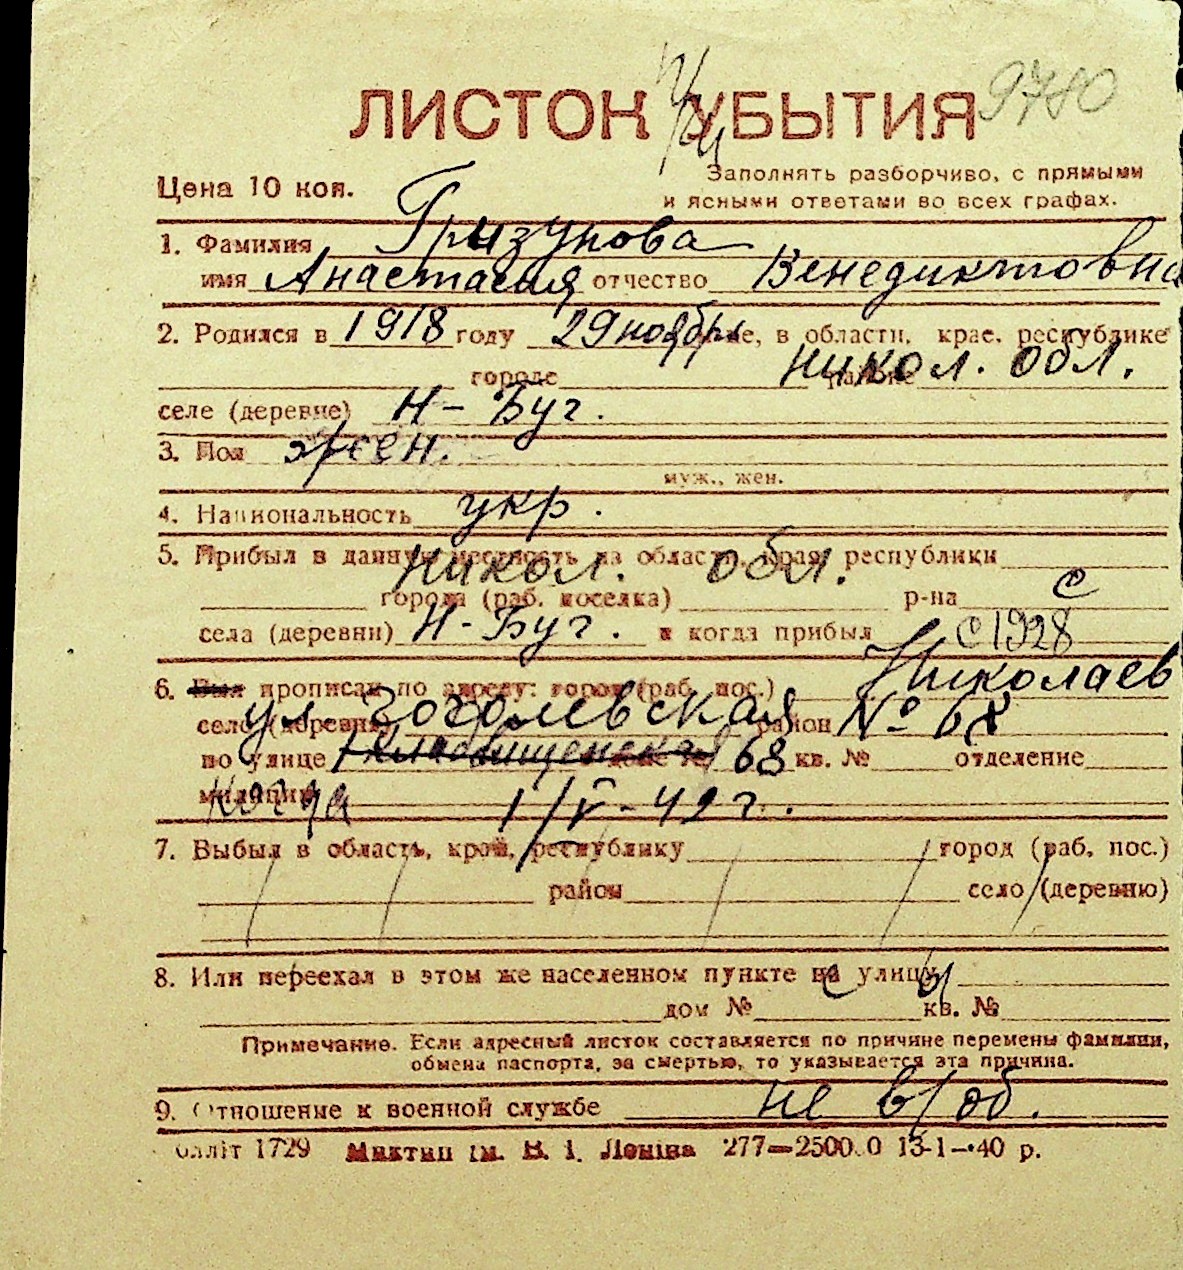 9780
ЛИСТОК УБЫТИЯ
Цена 10 коп.
Заполнять разборчиво, с прямыми
и ясными ответами во всех графах.
1. Фамилия Гризунова
имя Анастасия отчество Венедиктовна
2. Родился в 1918 году 29 ноября в области, крае, республике
городе районе никол. обл.
селе (деревне) Н-Буг.
3. Пол жен.
муж., жен.
4. Национальность укр.
5. Прибыл в данную местность из области, края, республики
никол. обл.
города (раб. поселка) р-на с
села (деревни) Н-Буг. и когда прибыл с 1928
6. Был прописан по адресу: город (раб. пос.) Николаев
село (деревня) ул. Гоголевская район № 68
по улице 68 кв. № отделение
милиции когда 1/V-42 г.
7. Выбыл в область, край, республику город (раб. пос.)
район село (деревню)
8. Или переехал в этом же населенном пункте на улицу
дом № кв. №
Примечание. Если адресный листок составляется по причине перемены фамилии,
обмена паспорта, за смертью, то указывается эта причина.
9. Отношение к военной службе не в/об.
1729 Миктип ім. В. І. Леніна 277—2500.0 13-1—40 р.